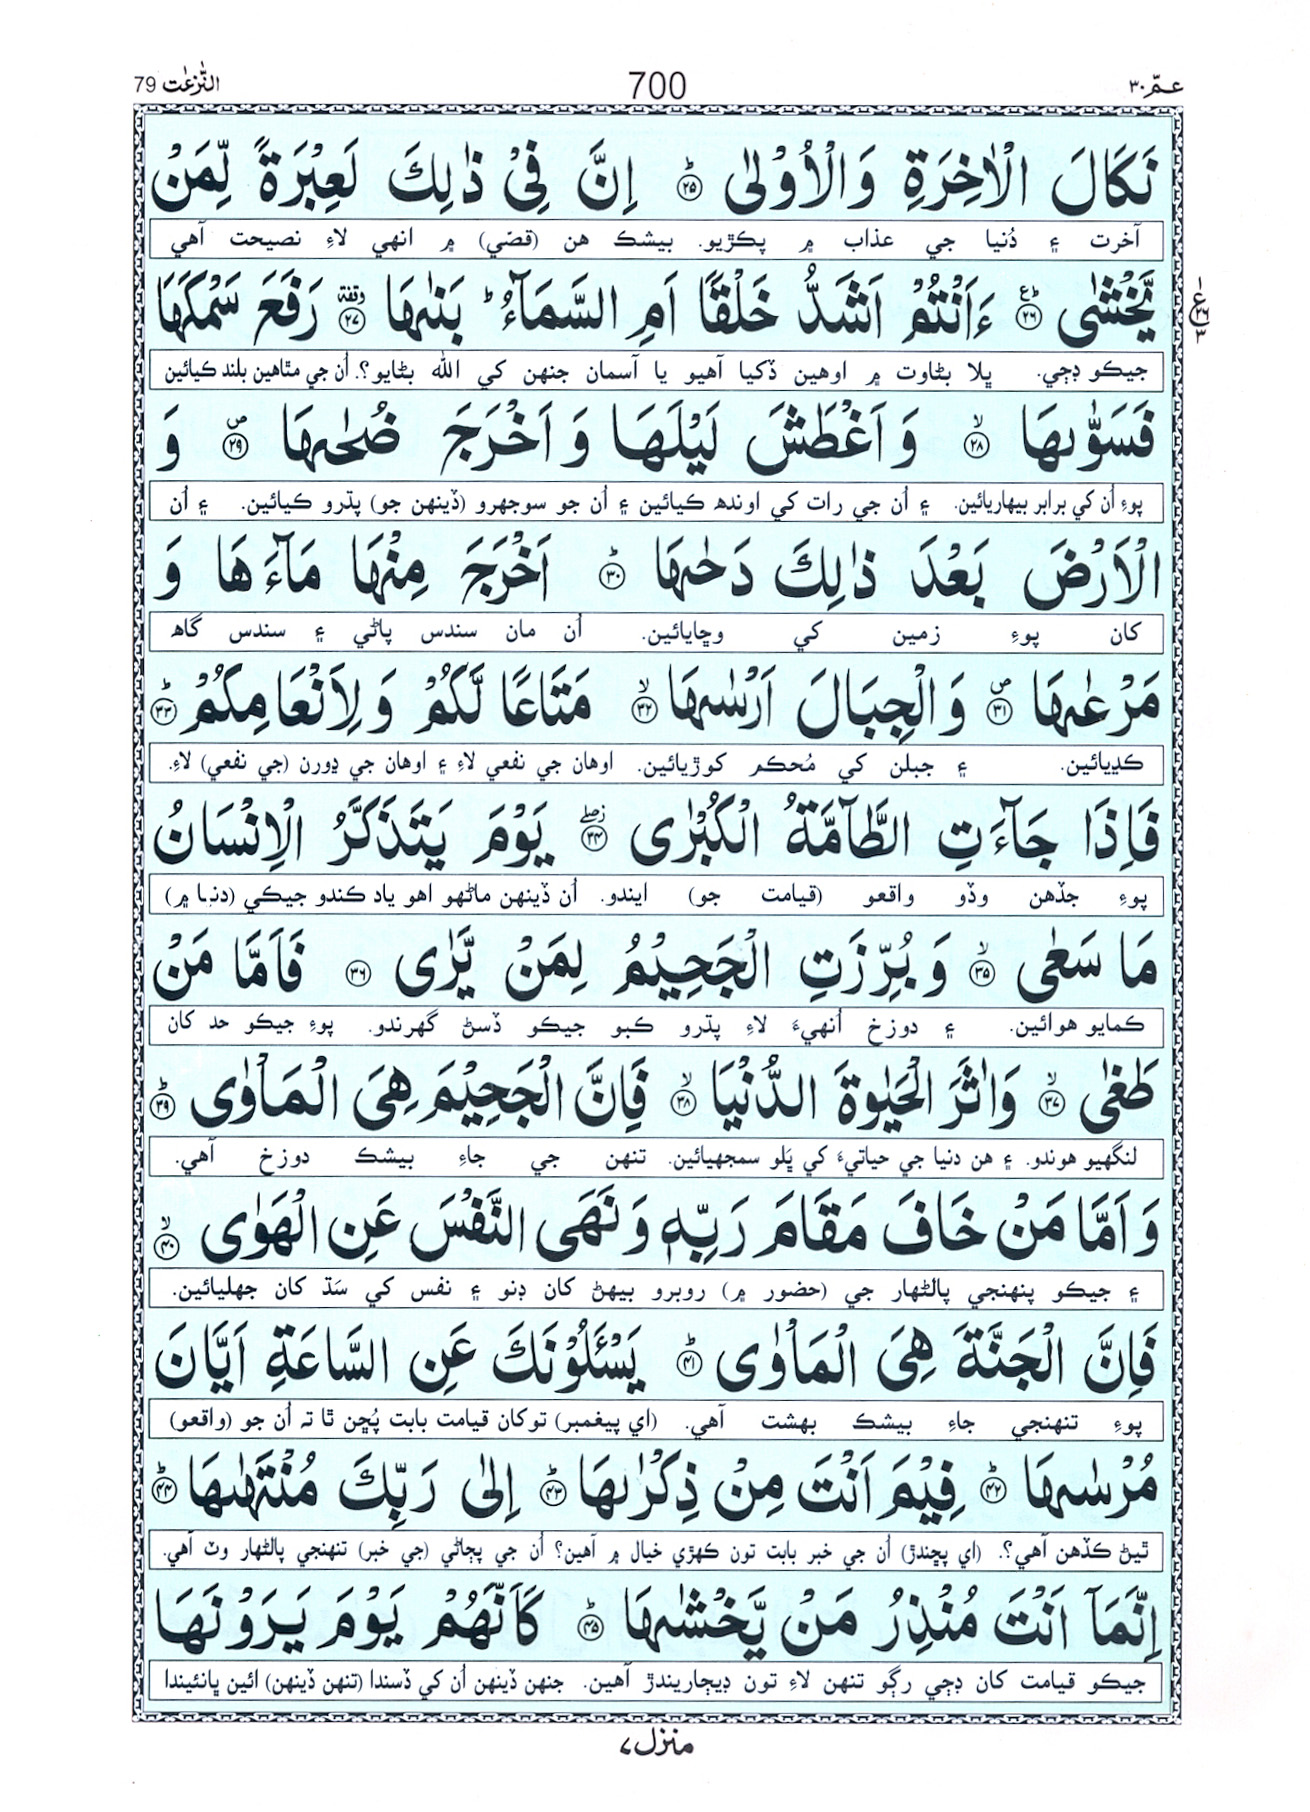 النّٰزعٰت 79
700
عمّ ٣٠
نَكَالَ الْاٰخِرَةِ وَالْاُوْلٰى ؕ ﴿٢٥﴾ اِنَّ فِيْ ذٰلِكَ لَعِبْرَةً لِّمَنْ
آخرت ۽ دُنيا جي عذاب ۾ پڪڙيو. بيشڪ هن (قصّي) ۾ انهي لاءِ نصيحت آهي
يَّخْشٰى ؕ ع ﴿٢٦﴾ ءَاَنْتُمْ اَشَدُّ خَلْقًا اَمِ السَّمَآءُ ؕ بَنٰىهَا وقفة ﴿٢٧﴾ رَفَعَ سَمْكَهَا
جيڪو ڊڄي. ڀلا بڻاوت ۾ اوهين ڏکيا آهيو يا آسمان جنهن کي الله بڻايو؟. اُن جي مٿاهين بلند ڪيائين
فَسَوّٰىهَا ۙ ﴿٢٨﴾ وَاَغْطَشَ لَيْلَهَا وَاَخْرَجَ ضُحٰىهَا ص ﴿٢٩﴾ وَ
پوءِ اُن کي برابر بيهاريائين. ۽ اُن جي رات کي اونده ڪيائين ۽ اُن جو سوجهرو (ڏينهن جو) پڌرو ڪيائين. ۽ اُن
الْاَرْضَ بَعْدَ ذٰلِكَ دَحٰىهَا ؕ ﴿٣٠﴾ اَخْرَجَ مِنْهَا مَآءَهَا وَ
کان پوءِ زمين کي وڇايائين. اُن مان سندس پاڻي ۽ سندس گاهه
مَرْعٰىهَا ص ﴿٣١﴾ وَالْجِبَالَ اَرْسٰىهَا ۙ ﴿٣٢﴾ مَتَاعًا لَّكُمْ وَلِاَنْعَامِكُمْ ؕ ﴿٣٣﴾
ڪڍيائين. ۽ جبلن کي مُحڪم کوڙيائين. اوهان جي نفعي لاءِ ۽ اوهان جي ڍورن (جي نفعي) لاءِ.
فَاِذَا جَآءَتِ الطَّآمَّةُ الْكُبْرٰى ز صلے ﴿٣٤﴾ يَوْمَ يَتَذَكَّرُ الْاِنْسَانُ
پوءِ جڏهن وڏو واقعو (قيامت جو) ايندو. اُن ڏينهن ماڻهو اهو ياد ڪندو جيڪي (دنيا ۾)
مَا سَعٰى ۙ ﴿٣٥﴾ وَبُرِّزَتِ الْجَحِيْمُ لِمَنْ يَّرٰى ﴿٣٦﴾ فَاَمَّا مَنْ
ڪمايو هوائين. ۽ دوزخ اُنهيءَ لاءِ پڌرو ڪبو جيڪو ڏسڻ گهرندو. پوءِ جيڪو حد کان
طَغٰى ۙ ﴿٣٧﴾ وَاٰثَرَ الْحَيٰوةَ الدُّنْيَا ۙ ﴿٣٨﴾ فَاِنَّ الْجَحِيْمَ هِيَ الْمَاْوٰى ؕ ﴿٣٩﴾
لنگهيو هوندو. ۽ هن دنيا جي حياتيءَ کي ڀَلو سمجهيائين. تنهن جي جاءِ بيشڪ دوزخ آهي.
وَاَمَّا مَنْ خَافَ مَقَامَ رَبِّهٖ وَنَهَى النَّفْسَ عَنِ الْهَوٰى ۙ ﴿٤٠﴾
۽ جيڪو پنهنجي پالڻهار جي (حضور ۾) روبرو بيهڻ کان ڊنو ۽ نفس کي سَڌ کان جهليائين.
فَاِنَّ الْجَنَّةَ هِيَ الْمَاْوٰى ؕ ﴿٤١﴾ يَسْـَٔلُوْنَكَ عَنِ السَّاعَةِ اَيَّانَ
پوءِ تنهنجي جاءِ بيشڪ بهشت آهي. (اي پيغمبر) توکان قيامت بابت پُڇن ٿا ته اُن جو (واقعو)
مُرْسٰىهَا ؕ ﴿٤٢﴾ فِيْمَ اَنْتَ مِنْ ذِكْرٰىهَا ؕ ﴿٤٣﴾ اِلٰى رَبِّكَ مُنْتَهٰىهَا ؕ ﴿٤٤﴾
ٿيڻ ڪڏهن آهي؟. (اي پڇندڙ) اُن جي خبر بابت تون ڪهڙي خيال ۾ آهين؟ اُن جي پڄاڻي (جي خبر) تنهنجي پالڻهار وٽ آهي.
اِنَّمَآ اَنْتَ مُنْذِرُ مَنْ يَّخْشٰىهَا ؕ ﴿٤٥﴾ كَاَنَّهُمْ يَوْمَ يَرَوْنَهَا
جيڪو قيامت کان ڊڄي رڳو تنهن لاءِ تون ڊيڄاريندڙ آهين. جنهن ڏينهن اُن کي ڏسندا (تنهن ڏينهن) ائين ڀانئيندا
١
ع ٢٦
٣
منزل ٧